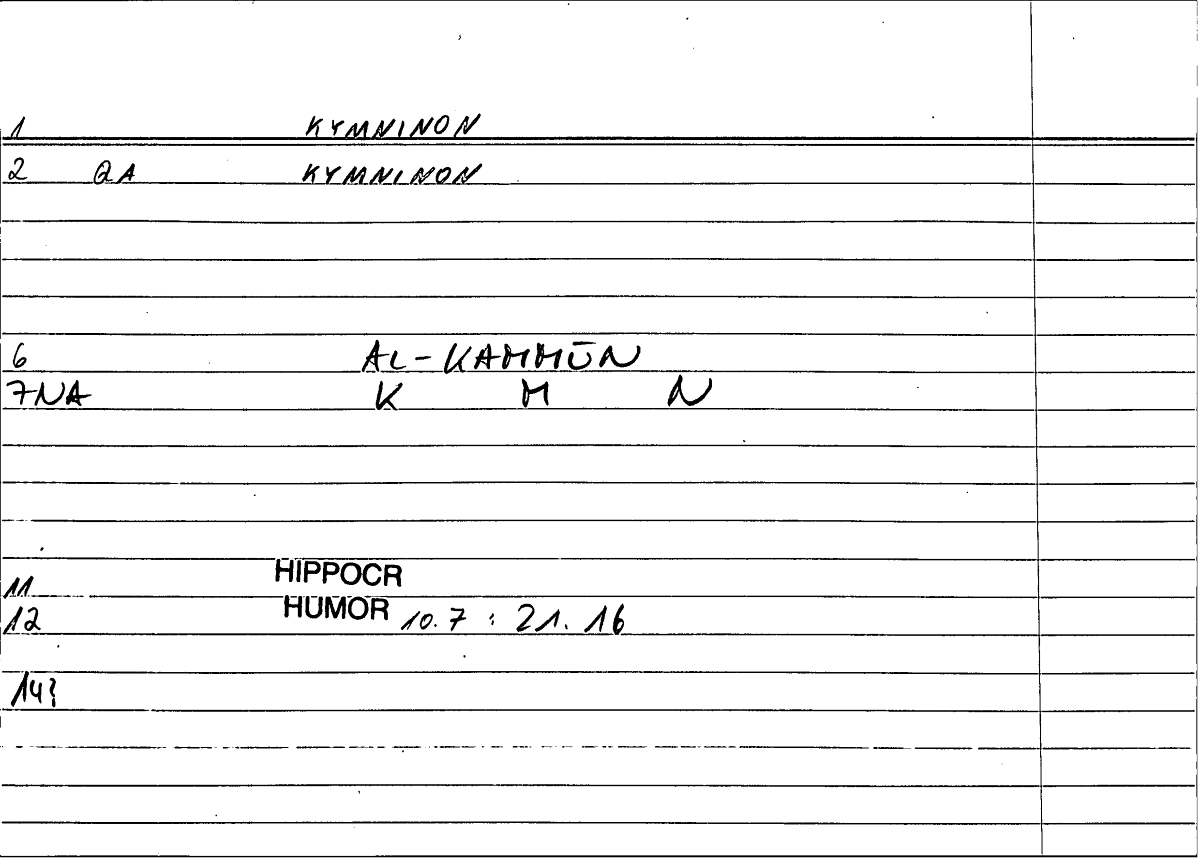 1 KYMNINON
2 QA KYMNINON
6 AL-KAMMŪN
7NA K M N
11 HIPPOCR
12 HUMOR 10.7 : 21.16
14?